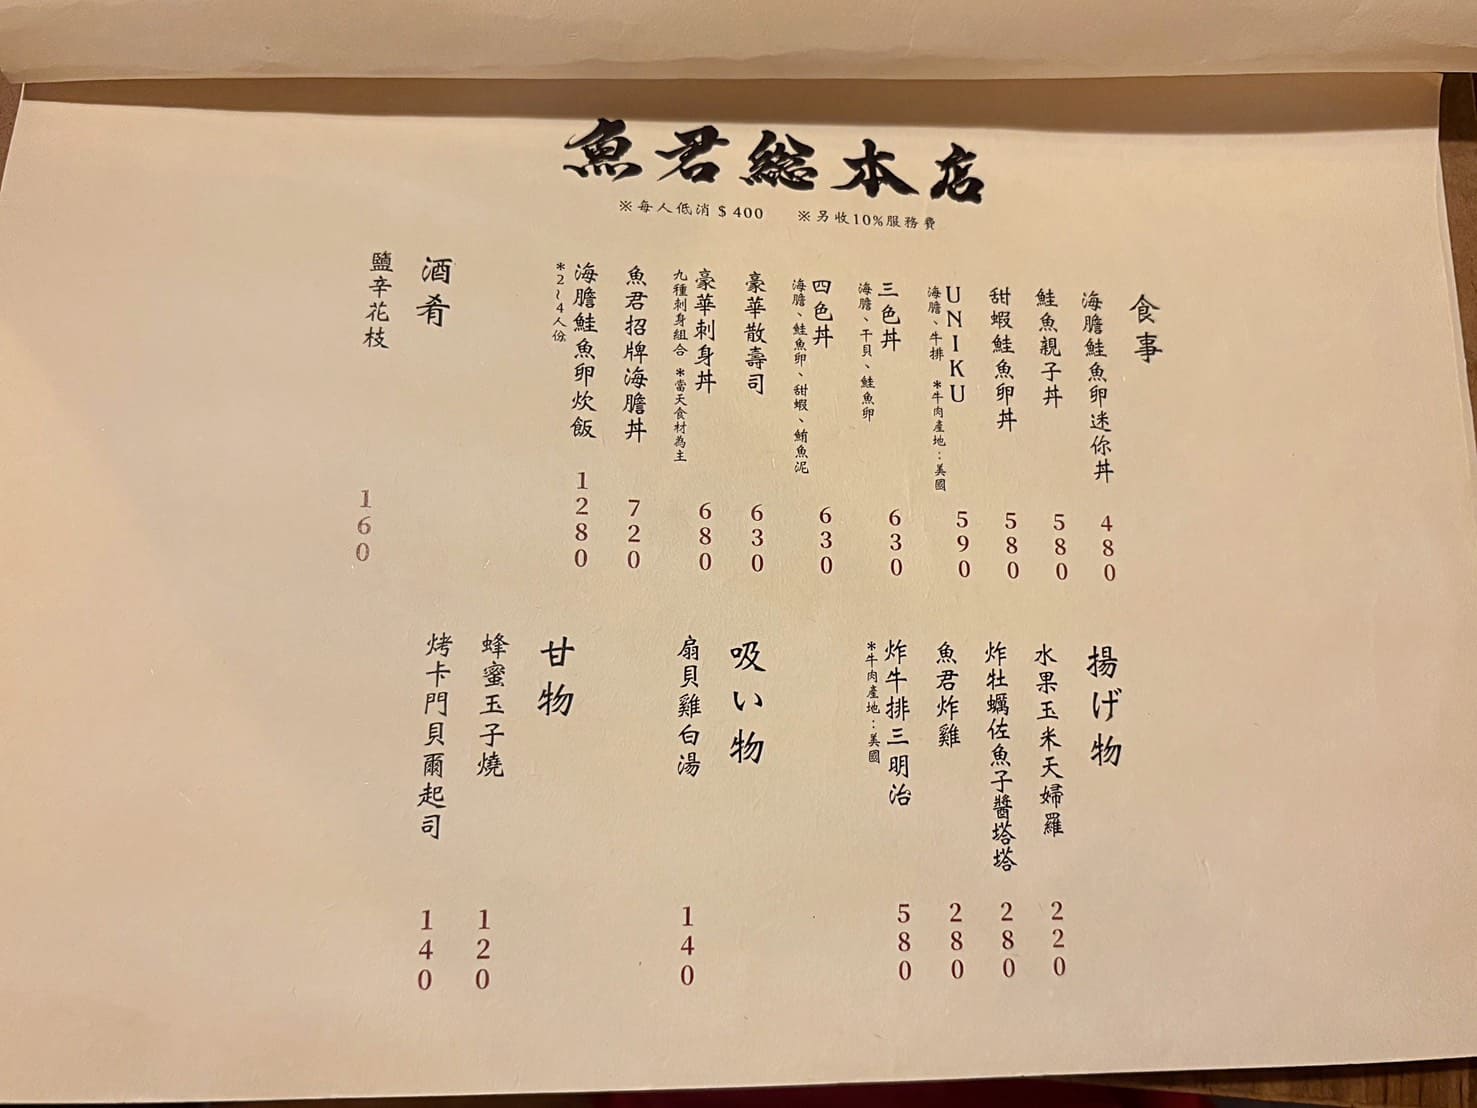 魚君総本店
※每人低消$400 ※另收10%服務費
食事
海膽鮭魚卵迷你丼 480
鮭魚親子丼 580
甜蝦鮭魚卵丼 580
UNIKU 590
海膽、牛排 *牛肉產地:美國
三色丼 630
海膽、干貝、鮭魚卵
四色丼 630
海膽、鮭魚卵、甜蝦、鮪魚泥
豪華散壽司 630
豪華刺身丼 680
九種刺身組合 *當天食材為主
魚君招牌海膽丼 720
海膽鮭魚卵炊飯 1280
*2~4人份
酒肴
鹽辛花枝 160
揚げ物
水果玉米天婦羅 220
炸牡蠣佐魚子醬塔塔 280
魚君炸雞 280
炸牛排三明治 580
*牛肉產地:美國
吸い物
扇貝雞白湯 140
甘物
蜂蜜玉子燒 120
烤卡門貝爾起司 140